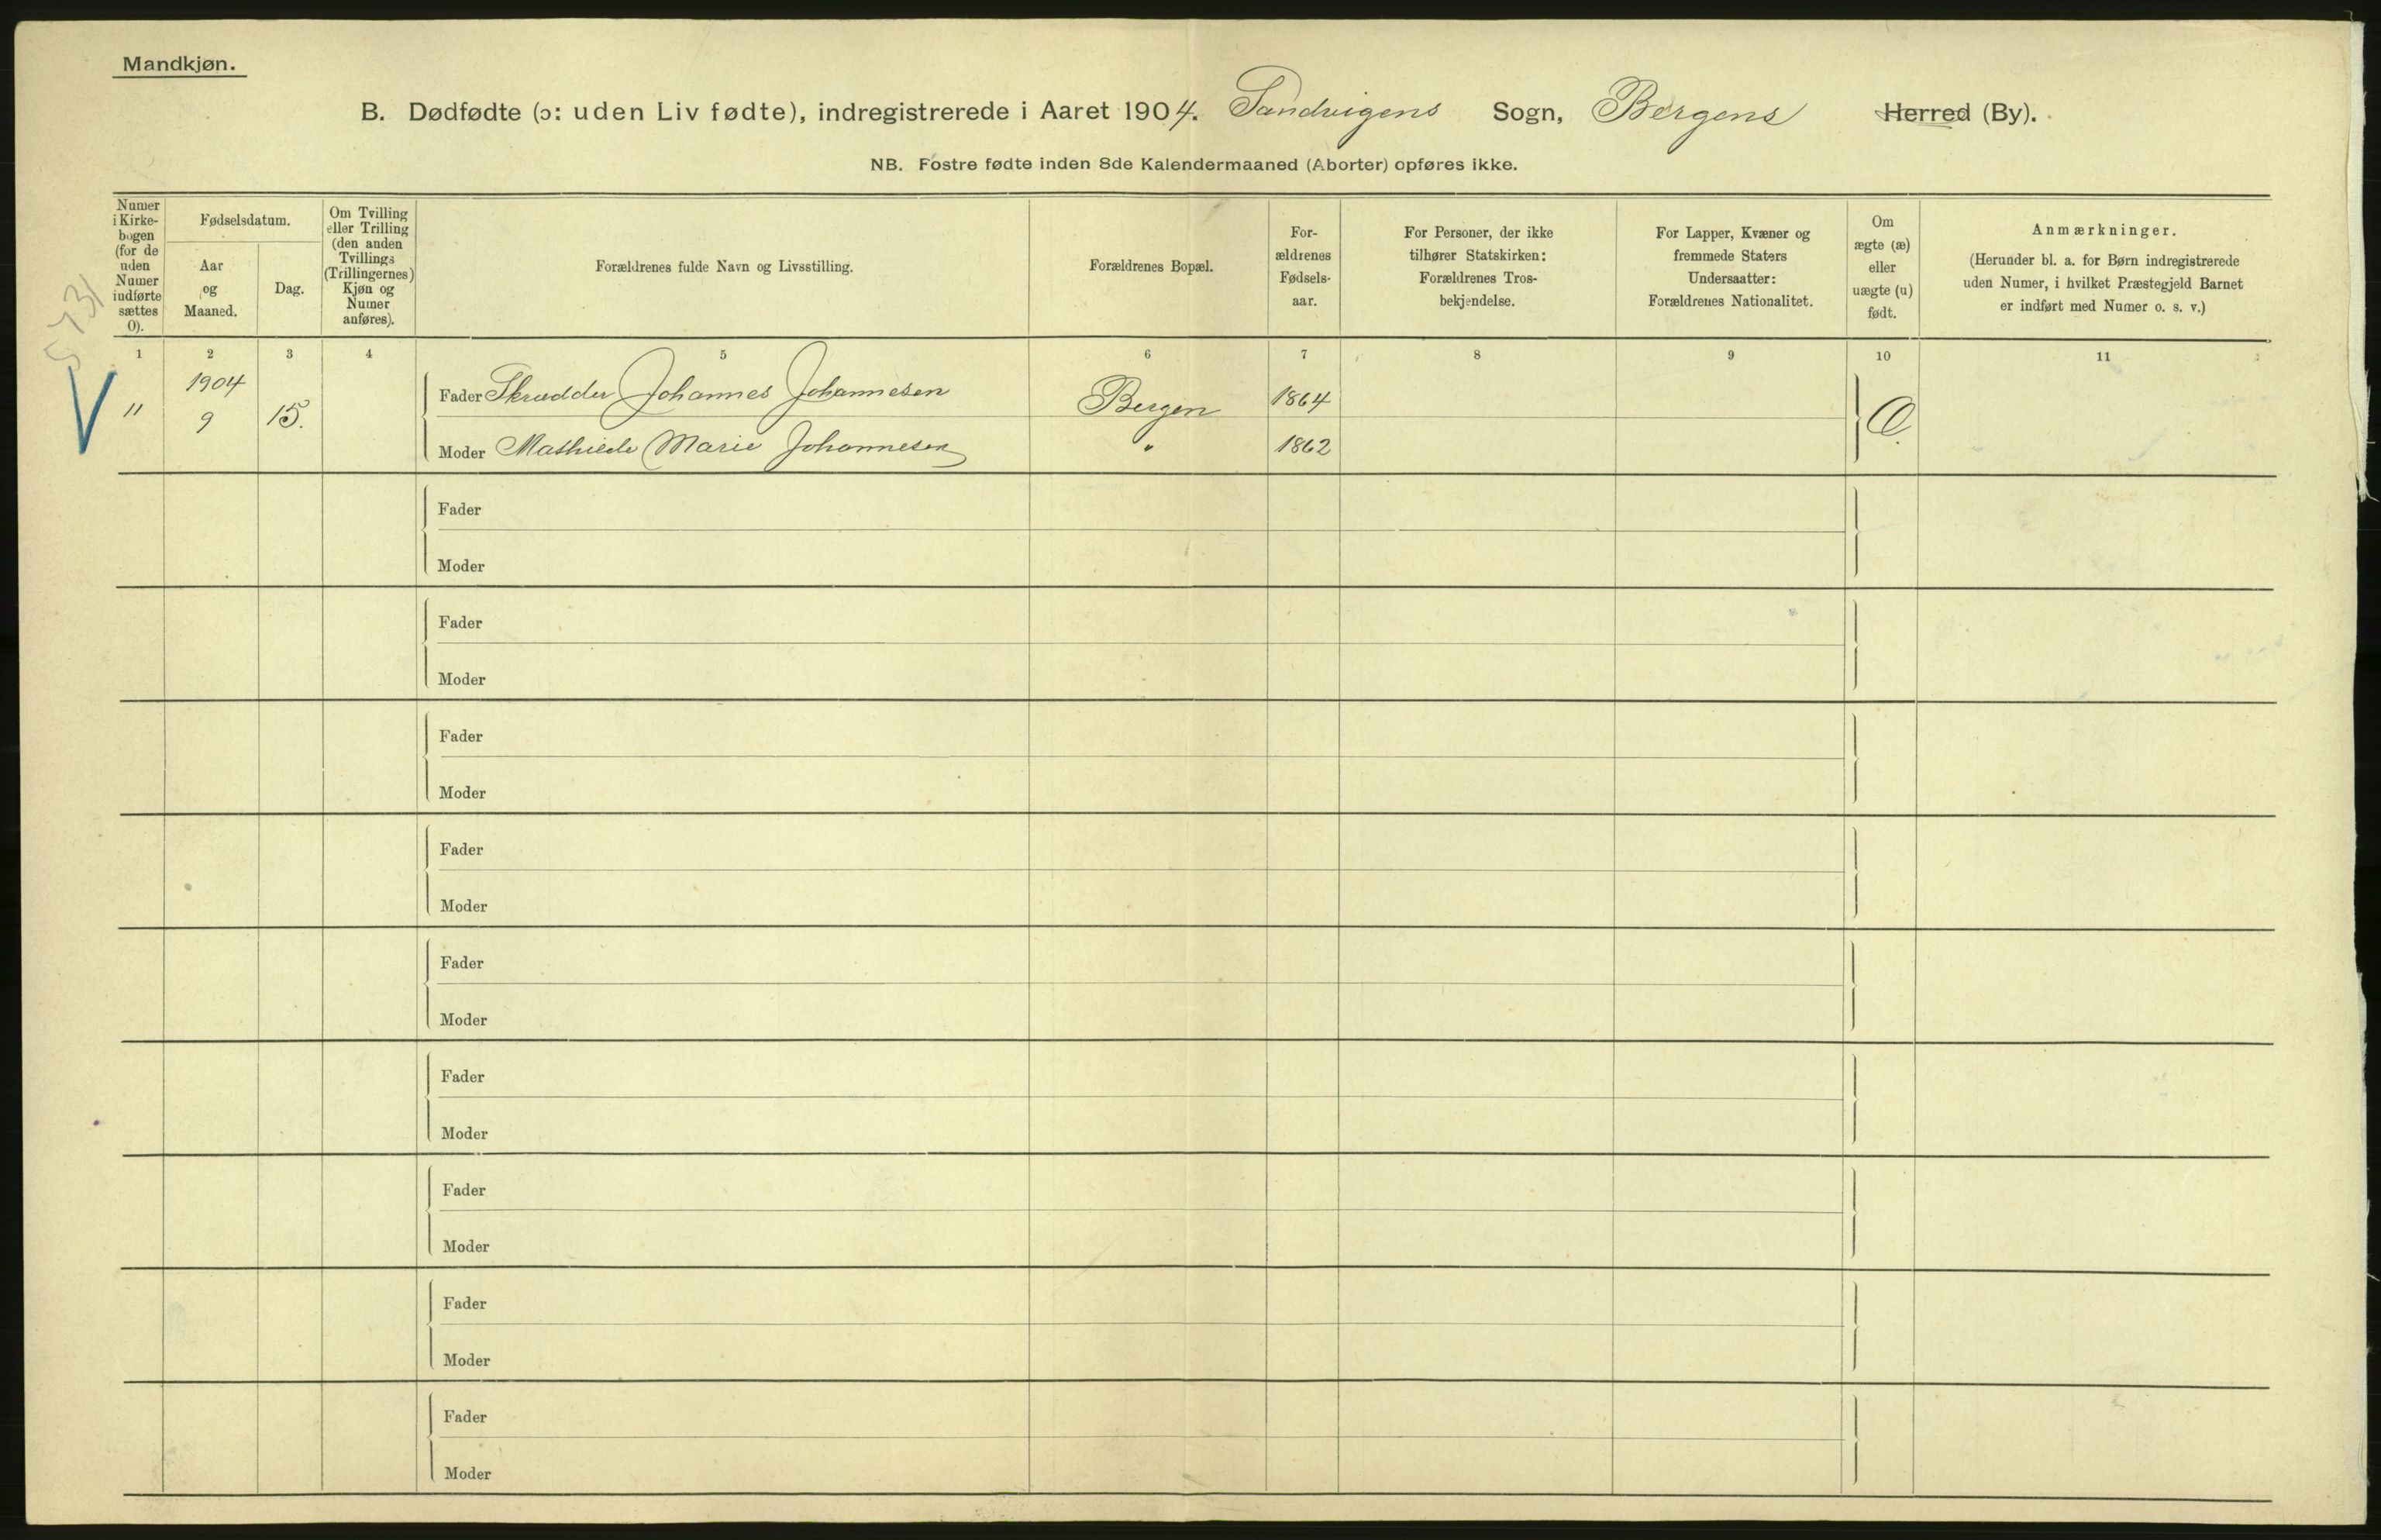 Mandkjøn.
B. Dødfødte (ɔ: uden Liv fødte), indregistrerede i Aaret 1904. Sandvigens Sogn, Bergens Herred (By).
NB. Fostre fødte inden 8de Kalendermaaned (Aborter) opføres ikke.
Numer
i Kirke-
bogen
(for de
uden
Numer
indførte
sættes
0).
Fødselsdatum.
Aar
og
Maaned.
Dag.
Om Tvilling
eller Trilling
(den anden
Tvillings
(Trillingernes)
Kjøn og
Numer
anføres).
Forældrenes fulde Navn og Livsstilling.
Forældrenes Bopæl.
For-
ældrenes
Fødsels-
aar.
For Personer, der ikke
tilhører Statskirken:
Forældrenes Tros-
bekjendelse.
For Lapper, Kvæner og
fremmede Staters
Undersaatter:
Forældrenes Nationalitet.
Om
ægte (æ)
eller
uægte (u)
født.
Anmærkninger.
(Herunder bl. a. for Børn indregistrerede
uden Numer, i hvilket Præstegjeld Barnet
er indført med Numer o. s. v.)
1 2 3 4 5 6 7 8 9 10 11
1904
" 9 15.
Fader Skrædder Johannes Johannesen Bergen 1864
Moder Mathilde Marie Johannesen " 1862
Fader
Moder
Fader
Moder
Fader
Moder
Fader
Moder
Fader
Moder
Fader
Moder
Fader
Moder
Fader
Moder
Fader
Moder